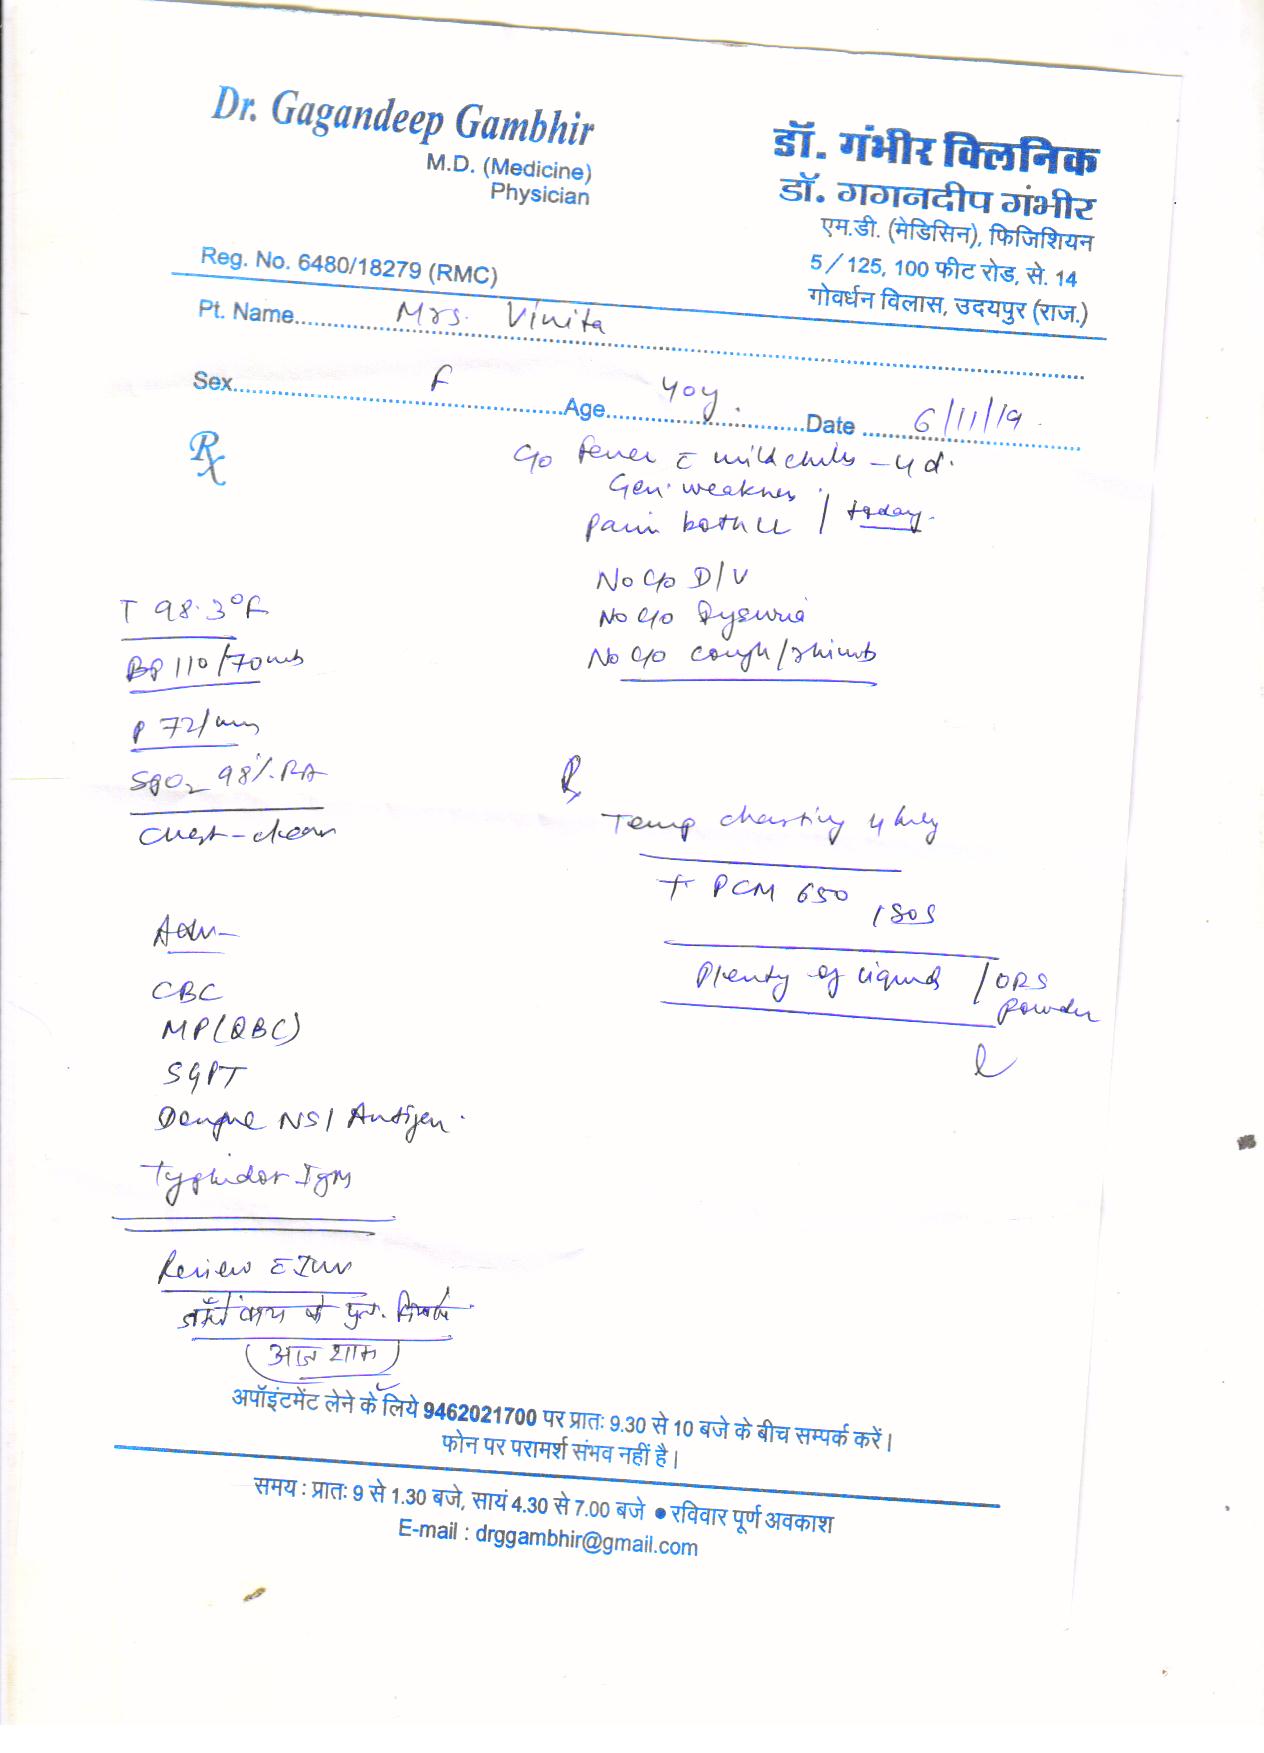 Dr. Gagandeep Gambhir
M.D. (Medicine)
Physician
Reg. No. 6480/18279 (RMC)
डॉ. गंभीर क्लिनिक
डॉ. गगनदीप गंभीर
एम.डी. (मेडिसिन), फिजिशियन
5/125, 100 फीट रोड, से. 14
गोवर्धन विलास, उदयपुर (राज.)
Pt. Name Mrs. Vinita
Sex F Age 40y. Date 6/11/19
Rx
C/o fever c mild chills - 4d.
Gen. weakness
Pain both LL / today.
No C/o D/V
No C/o Dysuria
No C/o cough/
T 98.3°F
BP 110/70
P 72/min
SpO2 98% RA
Chest - clear
Rx
Temp charting 4 hrly
T PCM 650 / SOS
Plenty of liquid / ORS
powder
Adv -
CBC
MP (QBC)
SGPT
Dengue NS1 Antigen.
Typhidot IgM
Review c Inv
(आज शाम)
अपॉइंटमेंट लेने के लिये 9462021700 पर प्रातः 9.30 से 10 बजे के बीच सम्पर्क करें।
फोन पर परामर्श संभव नहीं है।
समय : प्रातः 9 से 1.30 बजे, सायं 4.30 से 7.00 बजे ● रविवार पूर्ण अवकाश
E-mail : drggambhir@gmail.com